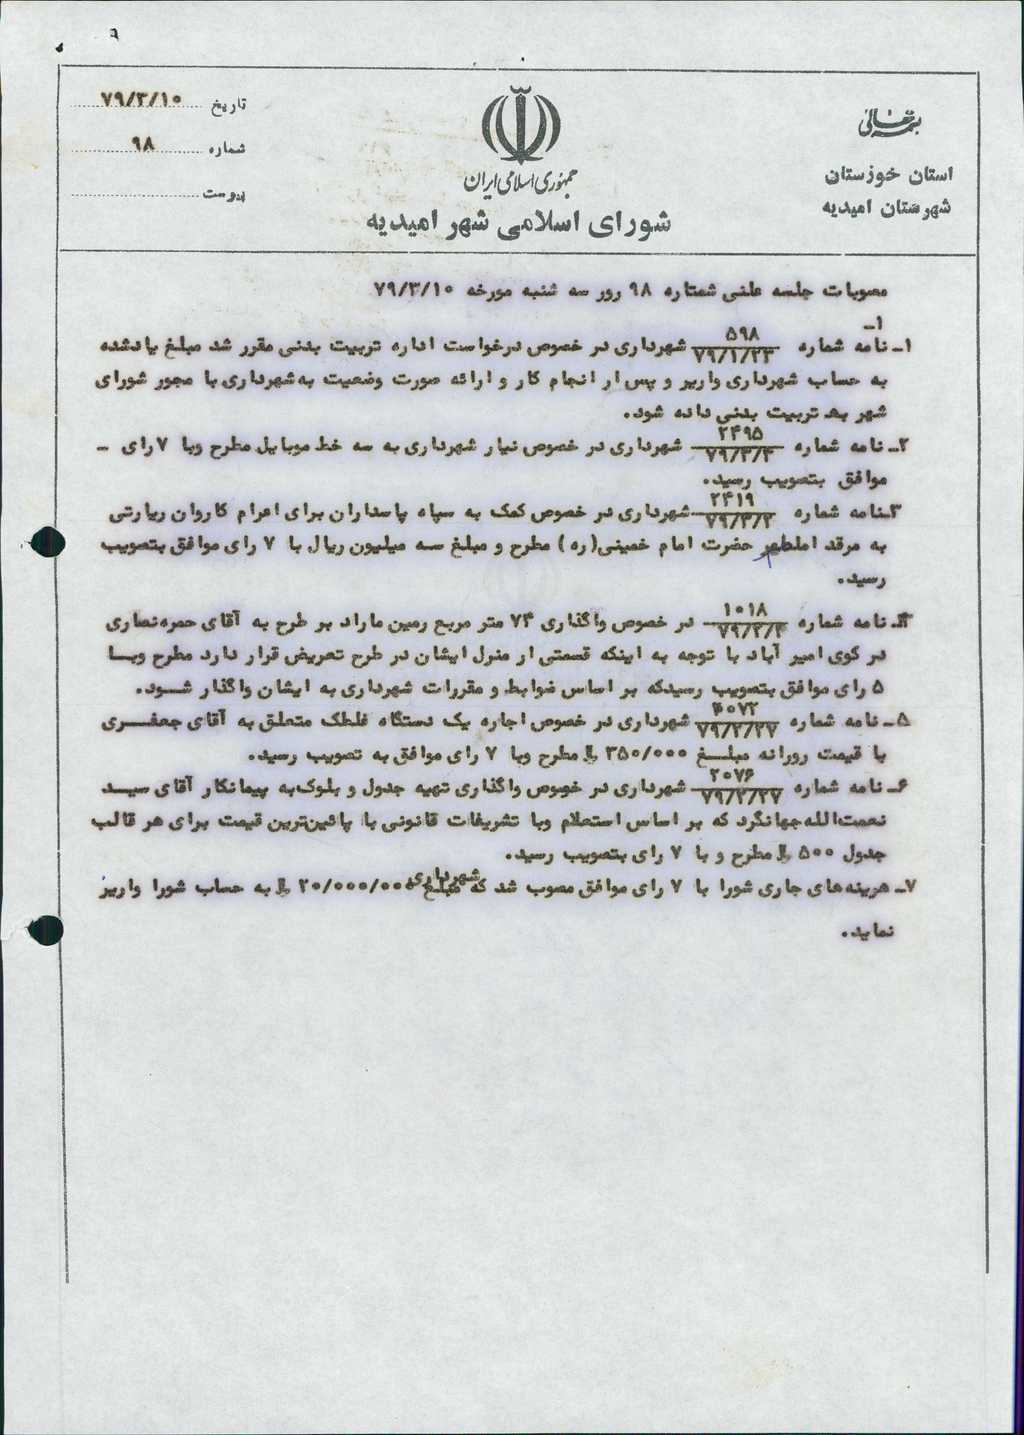 ۹
بسمه تعالی
استان خوزستان
شهرستان امیدیه
جمهوری اسلامی ایران
شورای اسلامی شهر امیدیه
تاریخ ۷۹/۳/۱۰
شماره ۹۸
پیوست
مصوبات جلسه علنی شماره ۹۸ روز سه شنبه مورخه ۷۹/۳/۱۰
۱ـ
۱ـ نامه شماره ۵۹۸ ۷۹/۱/۲۳ شهرداری در خصوص درخواست اداره تربیت بدنی مقرر شد مبلغ یادشده
به حساب شهرداری واریز و پس از انجام کار و ارائه صورت وضعیت به شهرداری با مجوز شورای
شهر به تربیت بدنی داده شود.
۲ـ نامه شماره ۲۴۹۵ ۷۹/۳/۳ شهرداری در خصوص نیاز شهرداری به سه خط موبایل مطرح وبا ۷ رای ـ
موافق بتصویب رسید.
۳ـ نامه شماره ۲۴۱۹ ۷۹/۳/۲ شهرداری در خصوص کمک به سپاه پاسداران برای اعزام کاروان زیارتی
به مرقد حضرت امام خمینی(ره) مطرح و مبلغ سه میلیون ریال با ۷ رای موافق بتصویب
رسید.
۴ـ نامه شماره ۱۰۱۸ در خصوص واگذاری ۷۴ متر مربع زمین مازاد بر طرح به آقای حمزه نصاری
در کوی امیر آباد با توجه به اینکه قسمتی از منزل ایشان در طرح تعریض قرار دارد مطرح وبا
۵ رای موافق بتصویب رسیدکه بر اساس ضوابط و مقررات شهرداری به ایشان واگذار شود.
۵ـ نامه شماره ۷۹/۲/۲۷ شهرداری در خصوص اجاره یک دستگاه غلطک متعلق به آقای جعفری
با قیمت روزانه مبلغ ۳۵۰/۰۰۰ ریال مطرح وبا ۷ رای موافق به تصویب رسید.
۶ـ نامه شماره ۲۰۷۶ ۷۹/۲/۲۷ شهرداری در خصوص واگذاری تهیه جدول و بلوک به پیمانکار آقای سید
نعمت‌الله جهانگرد که بر اساس استعلام وبا تشریفات قانونی با پائین‌ترین قیمت برای هر قالب
جدول ۵۰۰ ریال مطرح و با ۷ رای بتصویب رسید.
۷ـ هزینه‌های جاری شورا با ۷ رای موافق مصوب شد که شهرداری مبلغ ۲۰/۰۰۰/۰۰۰ ریال به حساب شورا واریز
نماید.